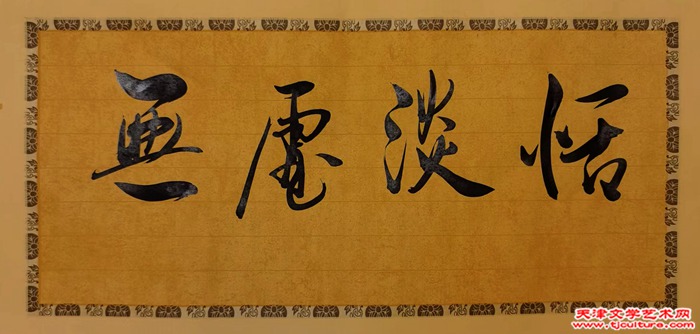 恬淡虛無
天津文学艺术网
www.tjculture.com